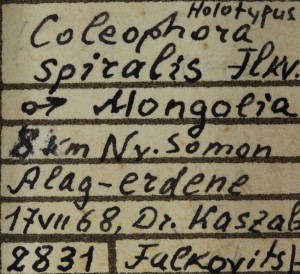 Holotypus
Coleophora
spiralis Flkv.
♂ Mongolia
8 km Nv. Somon
Alag-erdene
17 VII 68, Dr. Kaszab
2831 Falkovitsh